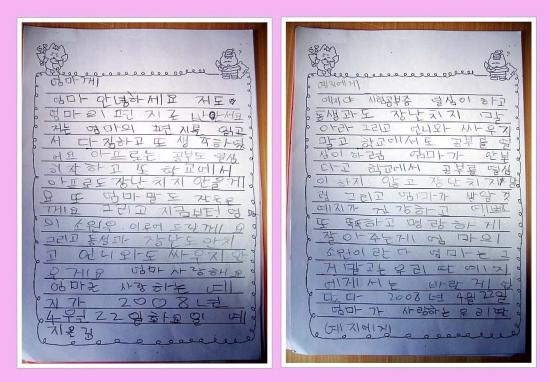 엄마께
엄마 안녕하세요 저도
엄마의 편지
저는 엄마의 편지를 읽고
서 다짐하고 또 생각하였
어요 앞으로는 공부도 열심
히 하고 또 학교에서
아프로도 장난치지 안을게
요 또 엄마 말도 잘
께요 그리고 지금부터 엄마
의 소원을 이루어 드릴게요
그리고 동생과 장난도 안치
고 언니와도 싸우지 안
을게요 엄마 사랑해요
엄마를 사랑하는 예
지가 2008년
4월 22일 화요일 예
지 올림
예지에게
예지야 사랑 열심이 하고
동생과도 장난치지 말
아라 그리고 언니와 싸우지
말고 학교에서도 공부를 열
심이 하렴 엄마가 안
다고 학교에서 공부를 열심
히 하지 않고 장난치지 말
렴 그리고 엄마가 바람
예지가 건강하고 예쁘
또 똑똑하고 명랑하게
잘 아주는게 엄마의
소원이란다 엄마는 그
게 말고는 우리 딸 예지
에게서는 바랄게 없
단다 2008년 4월 22일
엄마가 사랑하는 우리딸
예지에게